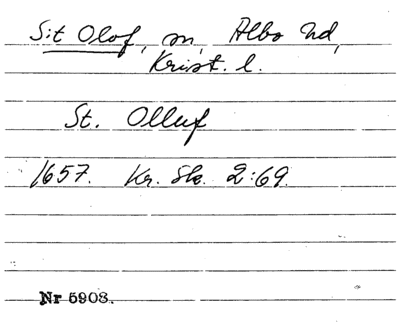 S:t Olof, sn, Albo hd,
Krist. l.
St. Olluf
1657. Kr. Sk. 2:69.
Nr 5908.